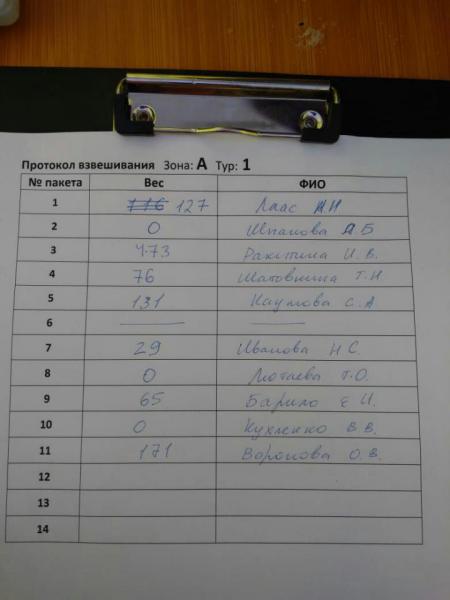 Протокол взвешивания Зона: А Тур: 1
№ пакета Вес ФИО
1 127 Лаас
2 0 Шпакова А Б
3 473 Ракитина И. В.
4 76 Т. Н
5 131 Наумова С. А
6
7 29 Иванова Н С.
8 0 Т. О.
9 65 Барило Е И.
10 0 Кухленко В. В.
11 171 Воронова О. В.
12
13
14